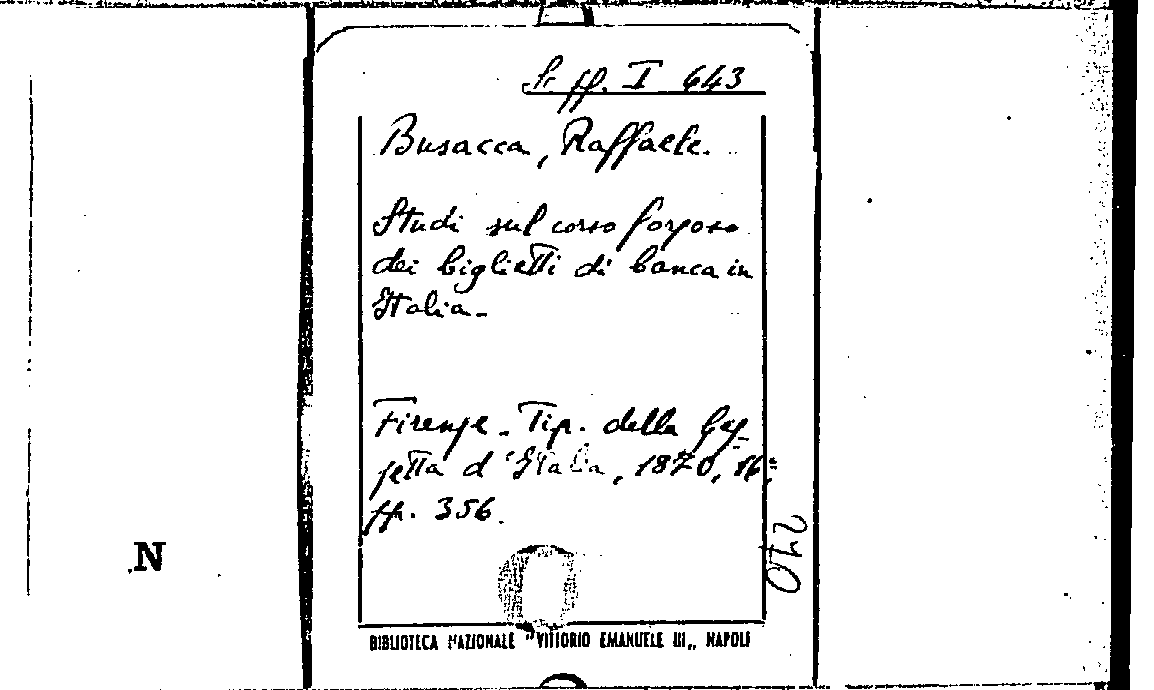 ff. I 643
Busacca, Raffaele.
Studi sul corso forzoso
dei biglietti di banca in
Italia.-
Firenze. Tip. della Gaz-
zetta d'Italia, 1870, 16°,
pp. 356.
240
N
BIBLIOTECA NAZIONALE "VITTORIO EMANUELE III„ NAPOLI